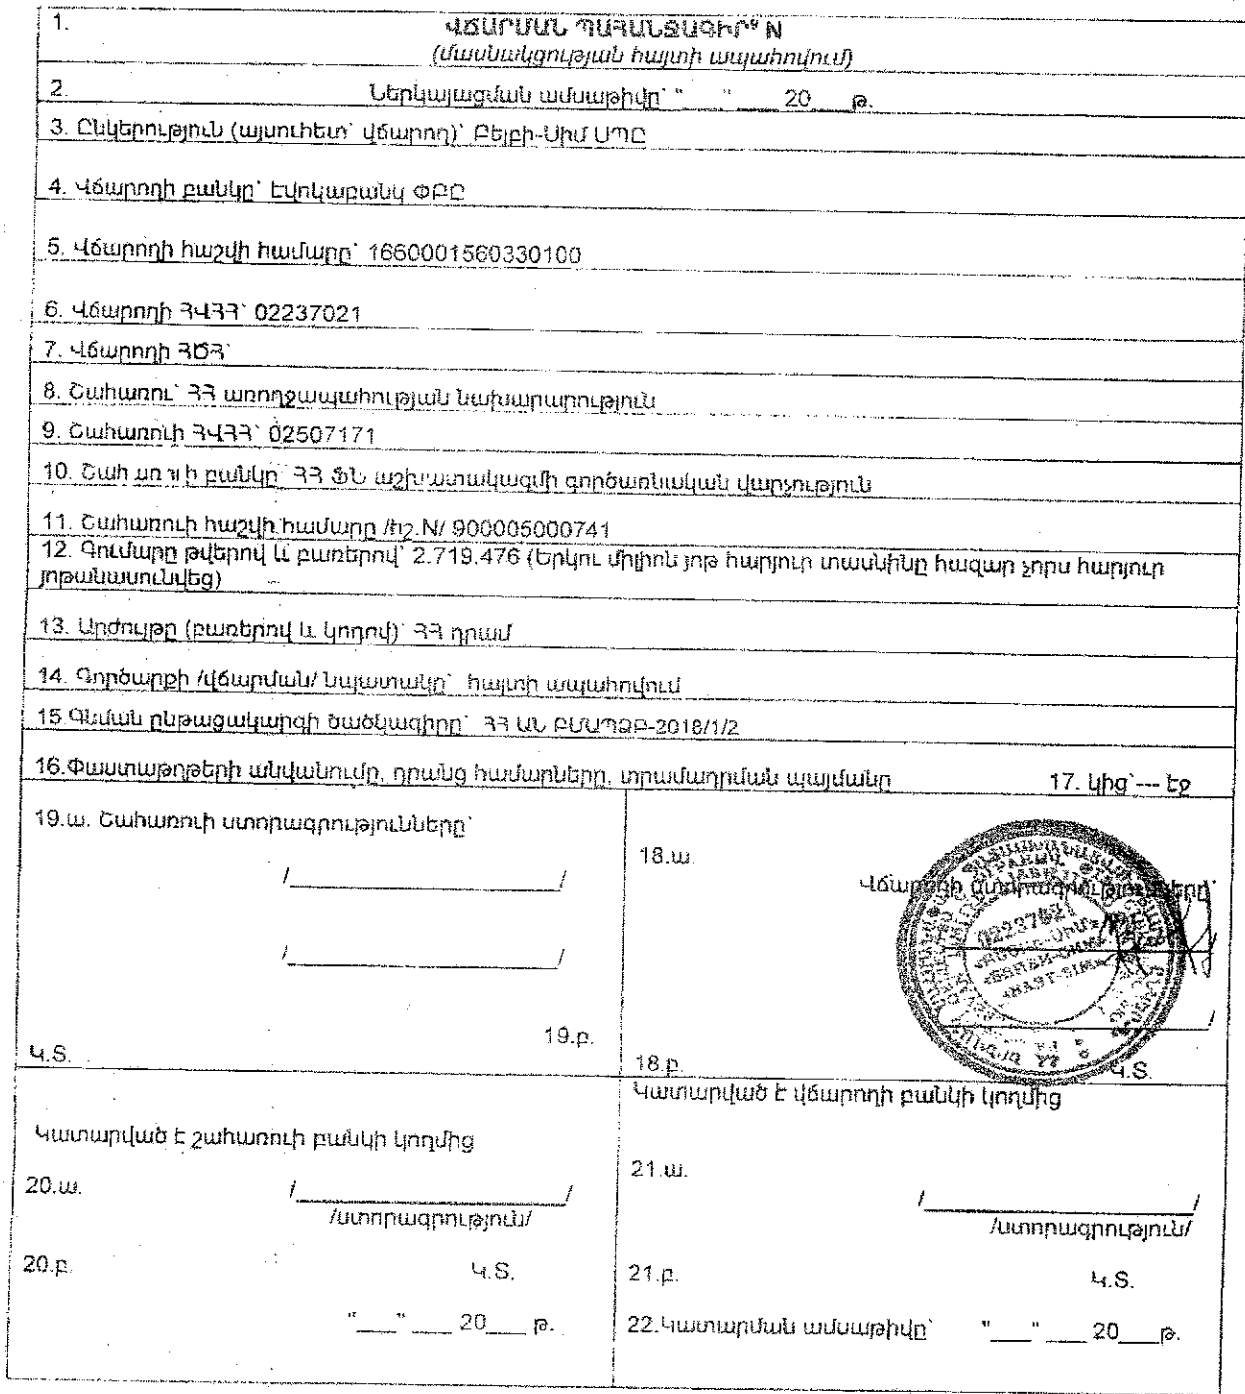 1. ՎՃԱՐՄԱՆ ՊԱՀԱՆՋԱԳԻՐ⁹ N
(մասնակցության հայտի ապահովում)
2. Ներկայացման ամսաթիվը՝ "___" ____ 20___թ.
3. Ընկերություն (այսուհետ՝ վճարող)՝ Բեյբի-Սիմ ՍՊԸ
4. Վճարողի բանկը՝ Էվոկաբանկ ՓԲԸ
5. Վճարողի հաշվի համարը՝ 1660001560330100
6. Վճարողի ՀՎՀՀ՝ 02237021
7. Վճարողի ՀԾՀ՝
8. Շահառու՝ ՀՀ առողջապահության նախարարություն
9. Շահառուի ՀՎՀՀ՝ 02507171
10. Շահառուի բանկը՝ ՀՀ ՖՆ աշխատակազմի գործառնական վարչություն
11. Շահառուի հաշվի համարը /հշ.N/ 900005000741
12. Գումարը թվերով և բառերով՝ 2.719.476 (Երկու միլիոն յոթ հարյուր տասնինը հազար չորս հարյուր
յոթանասունվեց)
13. Արժույթը (բառերով և կոդով)՝ ՀՀ դրամ
14. Գործարքի /վճարման/ նպատակը՝ հայտի ապահովում
15.Գնման ընթացակարգի ծածկագիրը՝ ՀՀ ԱՆ ԲՄԱՊՁԲ-2018/1/2
16.Փաստաթղթերի անվանումը, դրանց համարները, տրամադրման պայմանը 17. կից՝--- էջ
19.ա. Շահառուի ստորագրությունները՝
/____________________/
/____________________/
19.բ.
Կ.Տ.
18.ա.
Վճարողի ստորագրությունները՝
02237021
18.բ.
Կ.Տ.
Կատարված է շահառուի բանկի կողմից
20.ա. /____________________/
/ստորագրություն/
20.բ. Կ.Տ.
"___" ____ 20____ թ.
Կատարված է վճարողի բանկի կողմից
21.ա.
/____________________/
/ստորագրություն/
21.բ. Կ.Տ.
22.Կատարման ամսաթիվը՝ "___" ____ 20___թ.